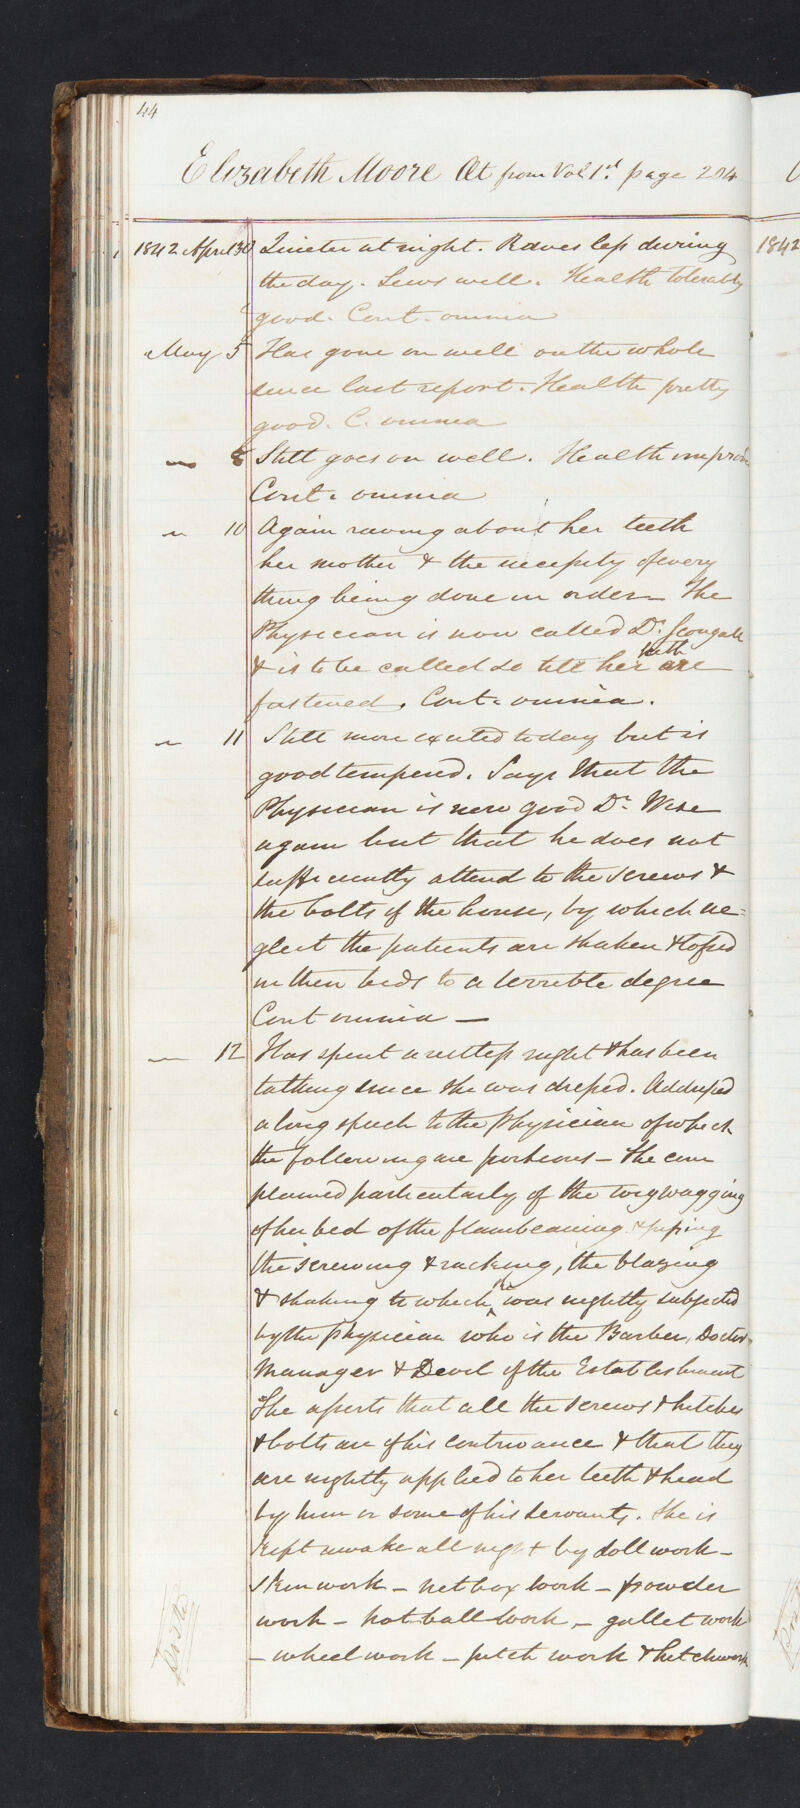 44
Elizabeth Moore Æt from Vol 1st page 204
1842 April 30 Quieter at night. Raves less during
the day. Sews well. Health tolerably
good. Cont. omnia
May 5 Has gone on well on the whole
since last report. Health pretty
good. C. omnia
" 8 Still goes on well. Health improv
Cont. omnia
" 10 Again raving about her teeth
her mother & the necessity of every
thing being done in order. The
Physician is now called Dr.
& is to be called so till her teeth are
fastened. Cont. omnia.
" 11 Still more excited today but is
good tempered. Says that the
Physician is now good Dr. Wise
again but that he does not
sufficiently attend to the screws &
the bolts of the house, by which ne=
glect the patients are shaken & tossed
in their beds to a terrible degree
Cont omnia —
" 12 Has spent a restless night & has been
talking since she was dressed. Addressed
a long speech to the Physician of which
the following are portions — She com
plained particularly of the wigwagging
of her bed of the flambeauing &
the screwing & racking, the blazing
& shaking to which she was nightly subjected
by the physician who is the Barber, Doctor
Manager & Devil of the Establishment
She asserts that all the screws & hitches
& bolts are of his contrivance & that they
are nightly applied to her teeth & head
by him or some of his servants. She is
kept awake all night by doll work —
skin work — net box work — powder
work — hot ball work, — gullet work
— wheel work — pitch work & hitchwork
1842